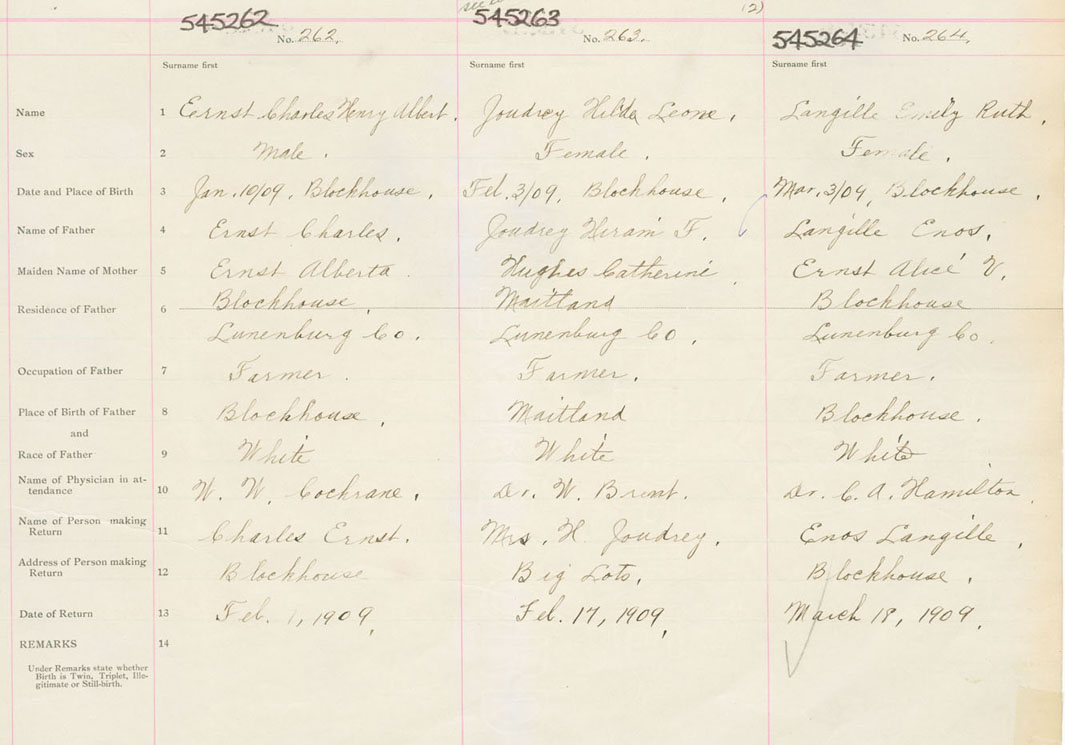 545262 545263 (2)
No. 262. No. 263. 545264 No. 264.
Surname first Surname first Surname first
Name 1 Eernst Charles Henry Albert. Joudrey Hilda Leone. Langille Emily Ruth.
Sex 2 Male. Female. Female.
Date and Place of Birth 3 Jan. 10/09, Blockhouse. Fel. 3/09, Blockhouse. Mar. 3/09, Blockhouse.
Name of Father 4 Ernst Charles. Joudrey Hiram F. Langille Enos.
Maiden Name of Mother 5 Ernst Alberta. Hughes Catherine. Ernst Alice V.
Residence of Father 6 Blockhouse, Maitland Blockhouse
Lunenburg Co. Lunenburg Co. Lunenburg Co.
Occupation of Father 7 Farmer. Farmer. Farmer.
Place of Birth of Father 8 Blockhouse. Maitland Blockhouse.
and
Race of Father 9 White White White
Name of Physician in at-
tendance 10 W. W. Cochrane. Dr. W. Brent. Dr. C. A. Hamilton.
Name of Person making
Return 11 Charles Ernst. Mrs. H. Joudrey. Enos Langille.
Address of Person making
Return 12 Blockhouse Big Lots. Blockhouse.
Date of Return 13 Feb. 1, 1909. Feb. 17, 1909. March 18, 1909.
REMARKS 14
Under Remarks state whether
Birth is Twin, Triplet, Ille-
gitimate or Still-birth.